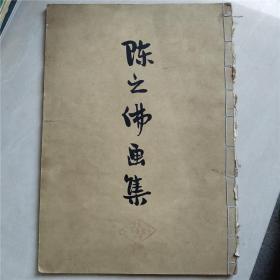 陈之佛画集